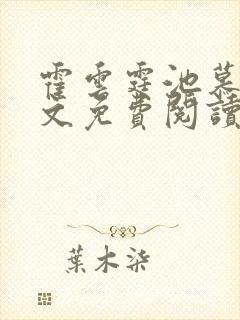 霍雲霆池慕
文免費閱讀
葉木柒